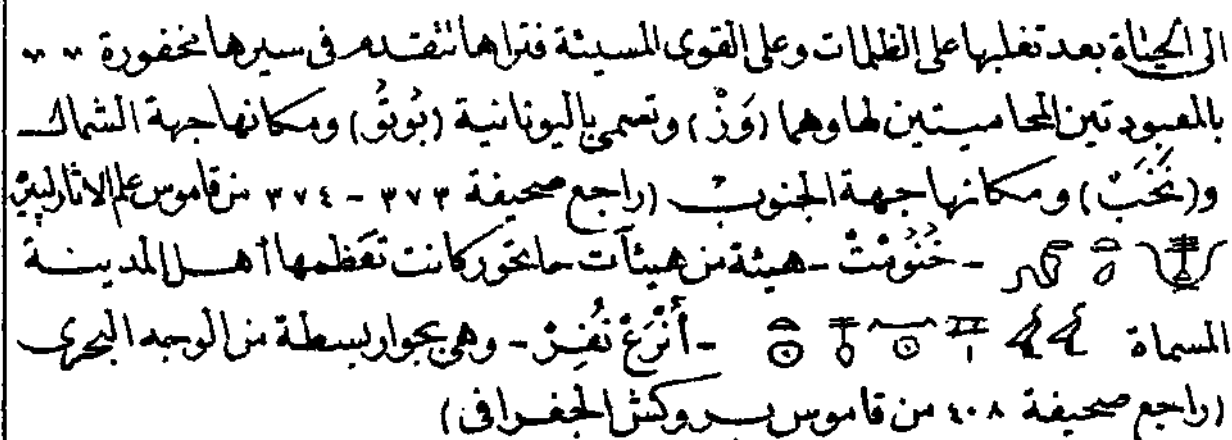 الى الحياة بعد تغلبها على الظلمات وعلى القوى المسيئة فتراها تتقدم فى سيرها مخفورة
بالمعبودتين المحاميتين لها وهما (وَزْ) وتسمى باليونانية (بُوتُو) ومكانها جهة الشمال
و(نَخَبْ) ومكانها جهة الجنوب (راجع صحيفة ٣٧٣ - ٣٧٤ من قاموس علم الاثار لبيره
- خُنُومْتْ - هيئة من هيئآت حاتحور كانت تعظمها أهل المدينة
المسماة - أَنْرَعْ نُفِرْ - وهى بجوار بسطة من الوجه البحرى
(راجع صحيفة ٤٠٨ من قاموس بروكش الجغرافى)